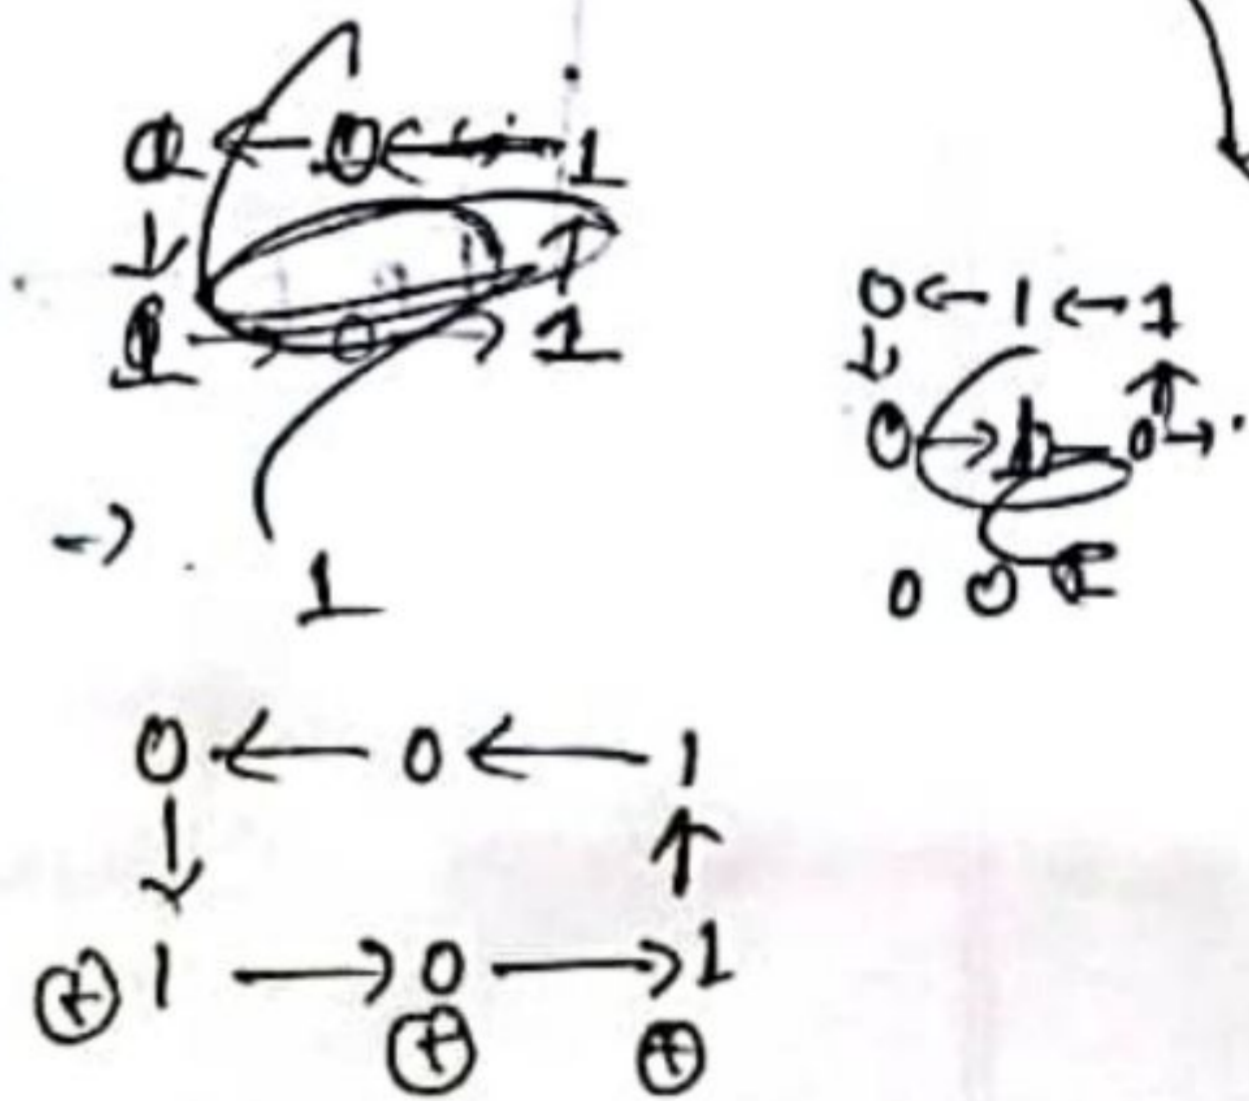 0 ← 0 ← 1
↓ ↑
→ 0 → 1
→ .
1
0 ← 1 ← 1
↓ ↑
0 → 0 → .
0 0
0 ← 0 ← 1
↓ ↑
⊕ 1 → 0 → 1
⊕ ⊕